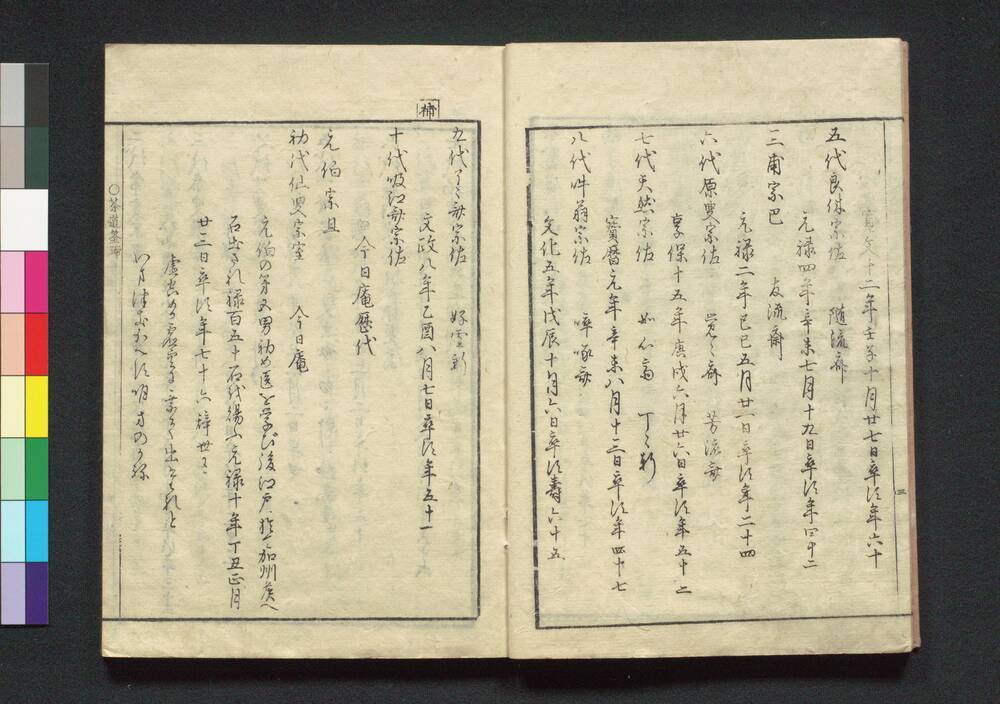 寛文十二年壬子十月廿七日卒行年六十
五代良休宗佐　随流斎
元禄四年辛未七月十九日卒行年四十二
三甫宗巴　友流斎
元禄二年己巳五月廿一日卒行年二十四
六代原叟宗佐　覚々斎　芳流斎
享保十五年庚戌六月廿六日卒行年五十二
七代天然宗佐　如心斎　丁々軒
寶暦元年辛未八月十三日卒行年四十七
八代件翁宗佐　啐啄斎
文化五年戊辰十月六日卒行壽六十五
三
補
九代了々斎宗佐　好雪軒
文政八年乙酉八月七日卒行年五十一
十代吸江斎宗佐
今日庵歴代
元伯宗旦
初代仙叟宗室　今日庵
元伯の第四男初め医を学び後江戸ニ於て加州侯へ
召出され禄百五十石を賜ふ元禄十年丁丑正月
廿三日卒行年七十六辞世に
○茶道筌蹄